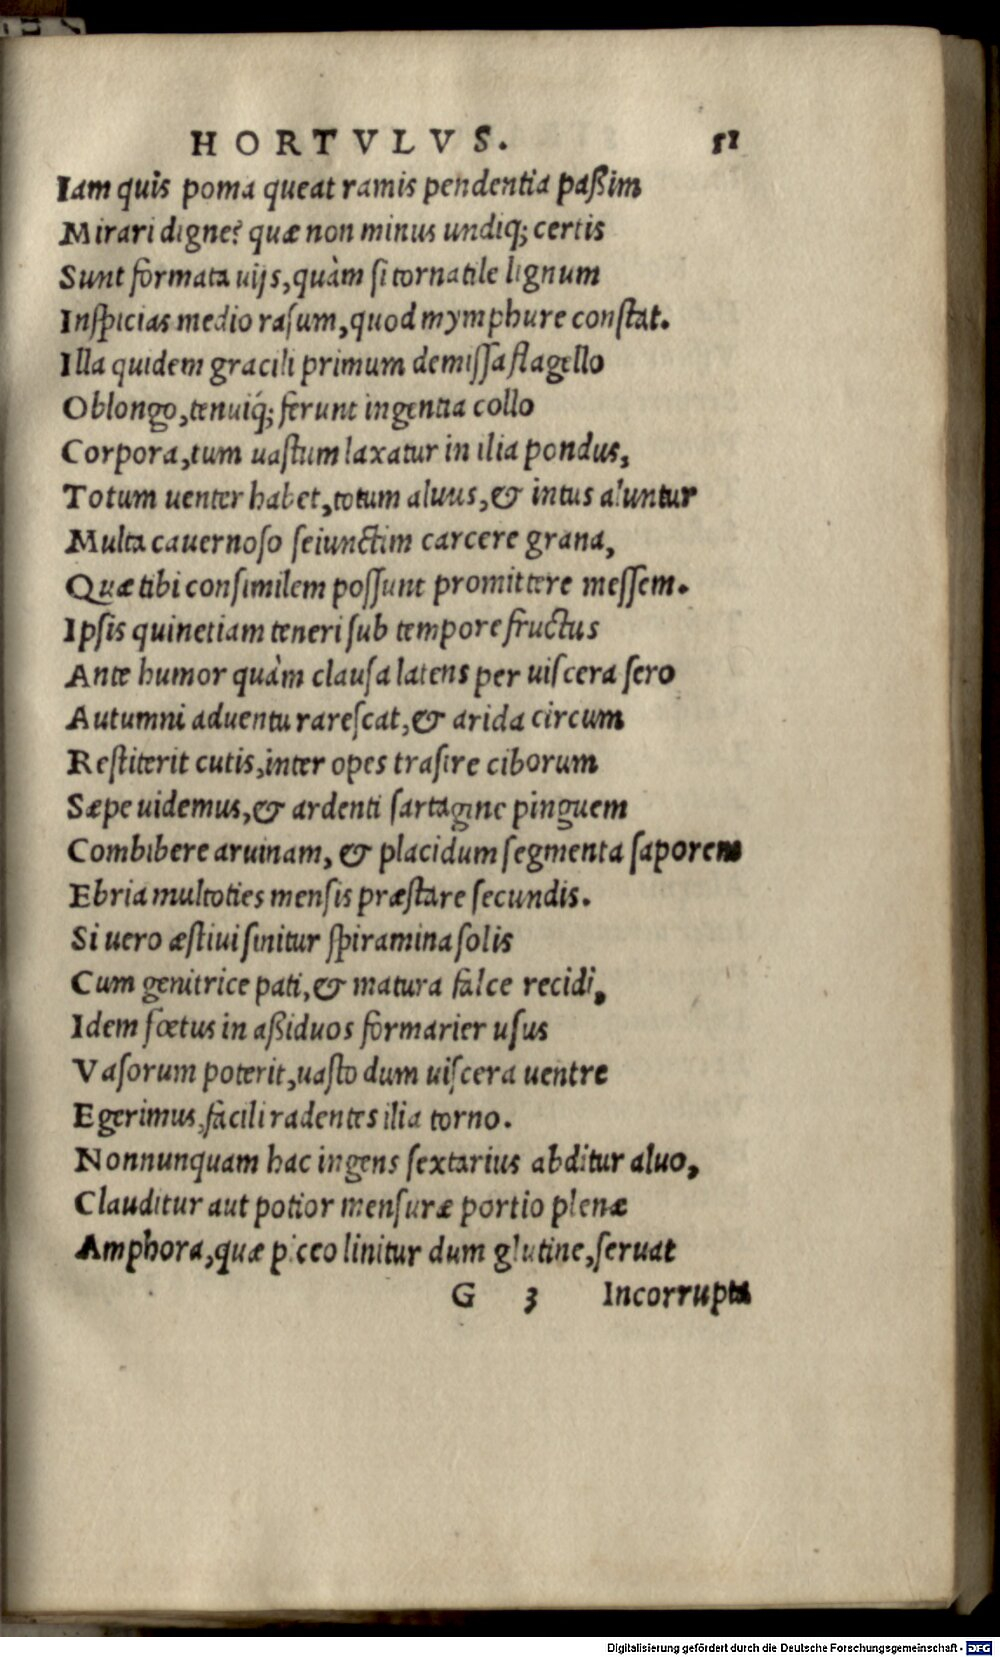 HORTVLVS. 51
Iam quis poma queat ramis pendentia paßim
Mirari digne? quæ non minus undiq; certis
Sunt formata uijs, quàm si tornatile lignum
Inspicias medio rasum, quod mymphure constat.
Illa quidem gracili primum demissa flagello
Oblongo, tenuiq́; ferunt ingentia collo
Corpora, tum uastum laxatur in ilia pondus,
Totum uenter habet, totum aluus, & intus aluntur
Multa cauernoso seiunctim carcere grana,
Quæ tibi consimilem possunt promittere messem.
Ipsis quinetiam teneri sub tempore fructus
Ante humor quàm clausa latens per uiscera sero
Autumni aduentu rarescat, & arida circum
Restiterit cutis, inter opes trasire ciborum
Sæpe uidemus, & ardenti sartagine pinguem
Combibere aruinam, & placidum segmenta saporem
Ebria multoties mensis præstare secundis.
Si uero æstiui sinitur spiramina solis
Cum genitrice pati, & matura falce recidi,
Idem fœtus in aßiduos formarier usus
Vasorum poterit, uasto dum uiscera uentre
Egerimus, facili radentes ilia torno.
Nonnunquam hac ingens sextarius abditur aluo,
Clauditur aut potior mensuræ portio plenæ
Amphora, quæ piceo linitur dum glutine, seruat
G 3 Incorrupta
Digitalisierung gefördert durch die Deutsche Forschungsgemeinschaft - DFG